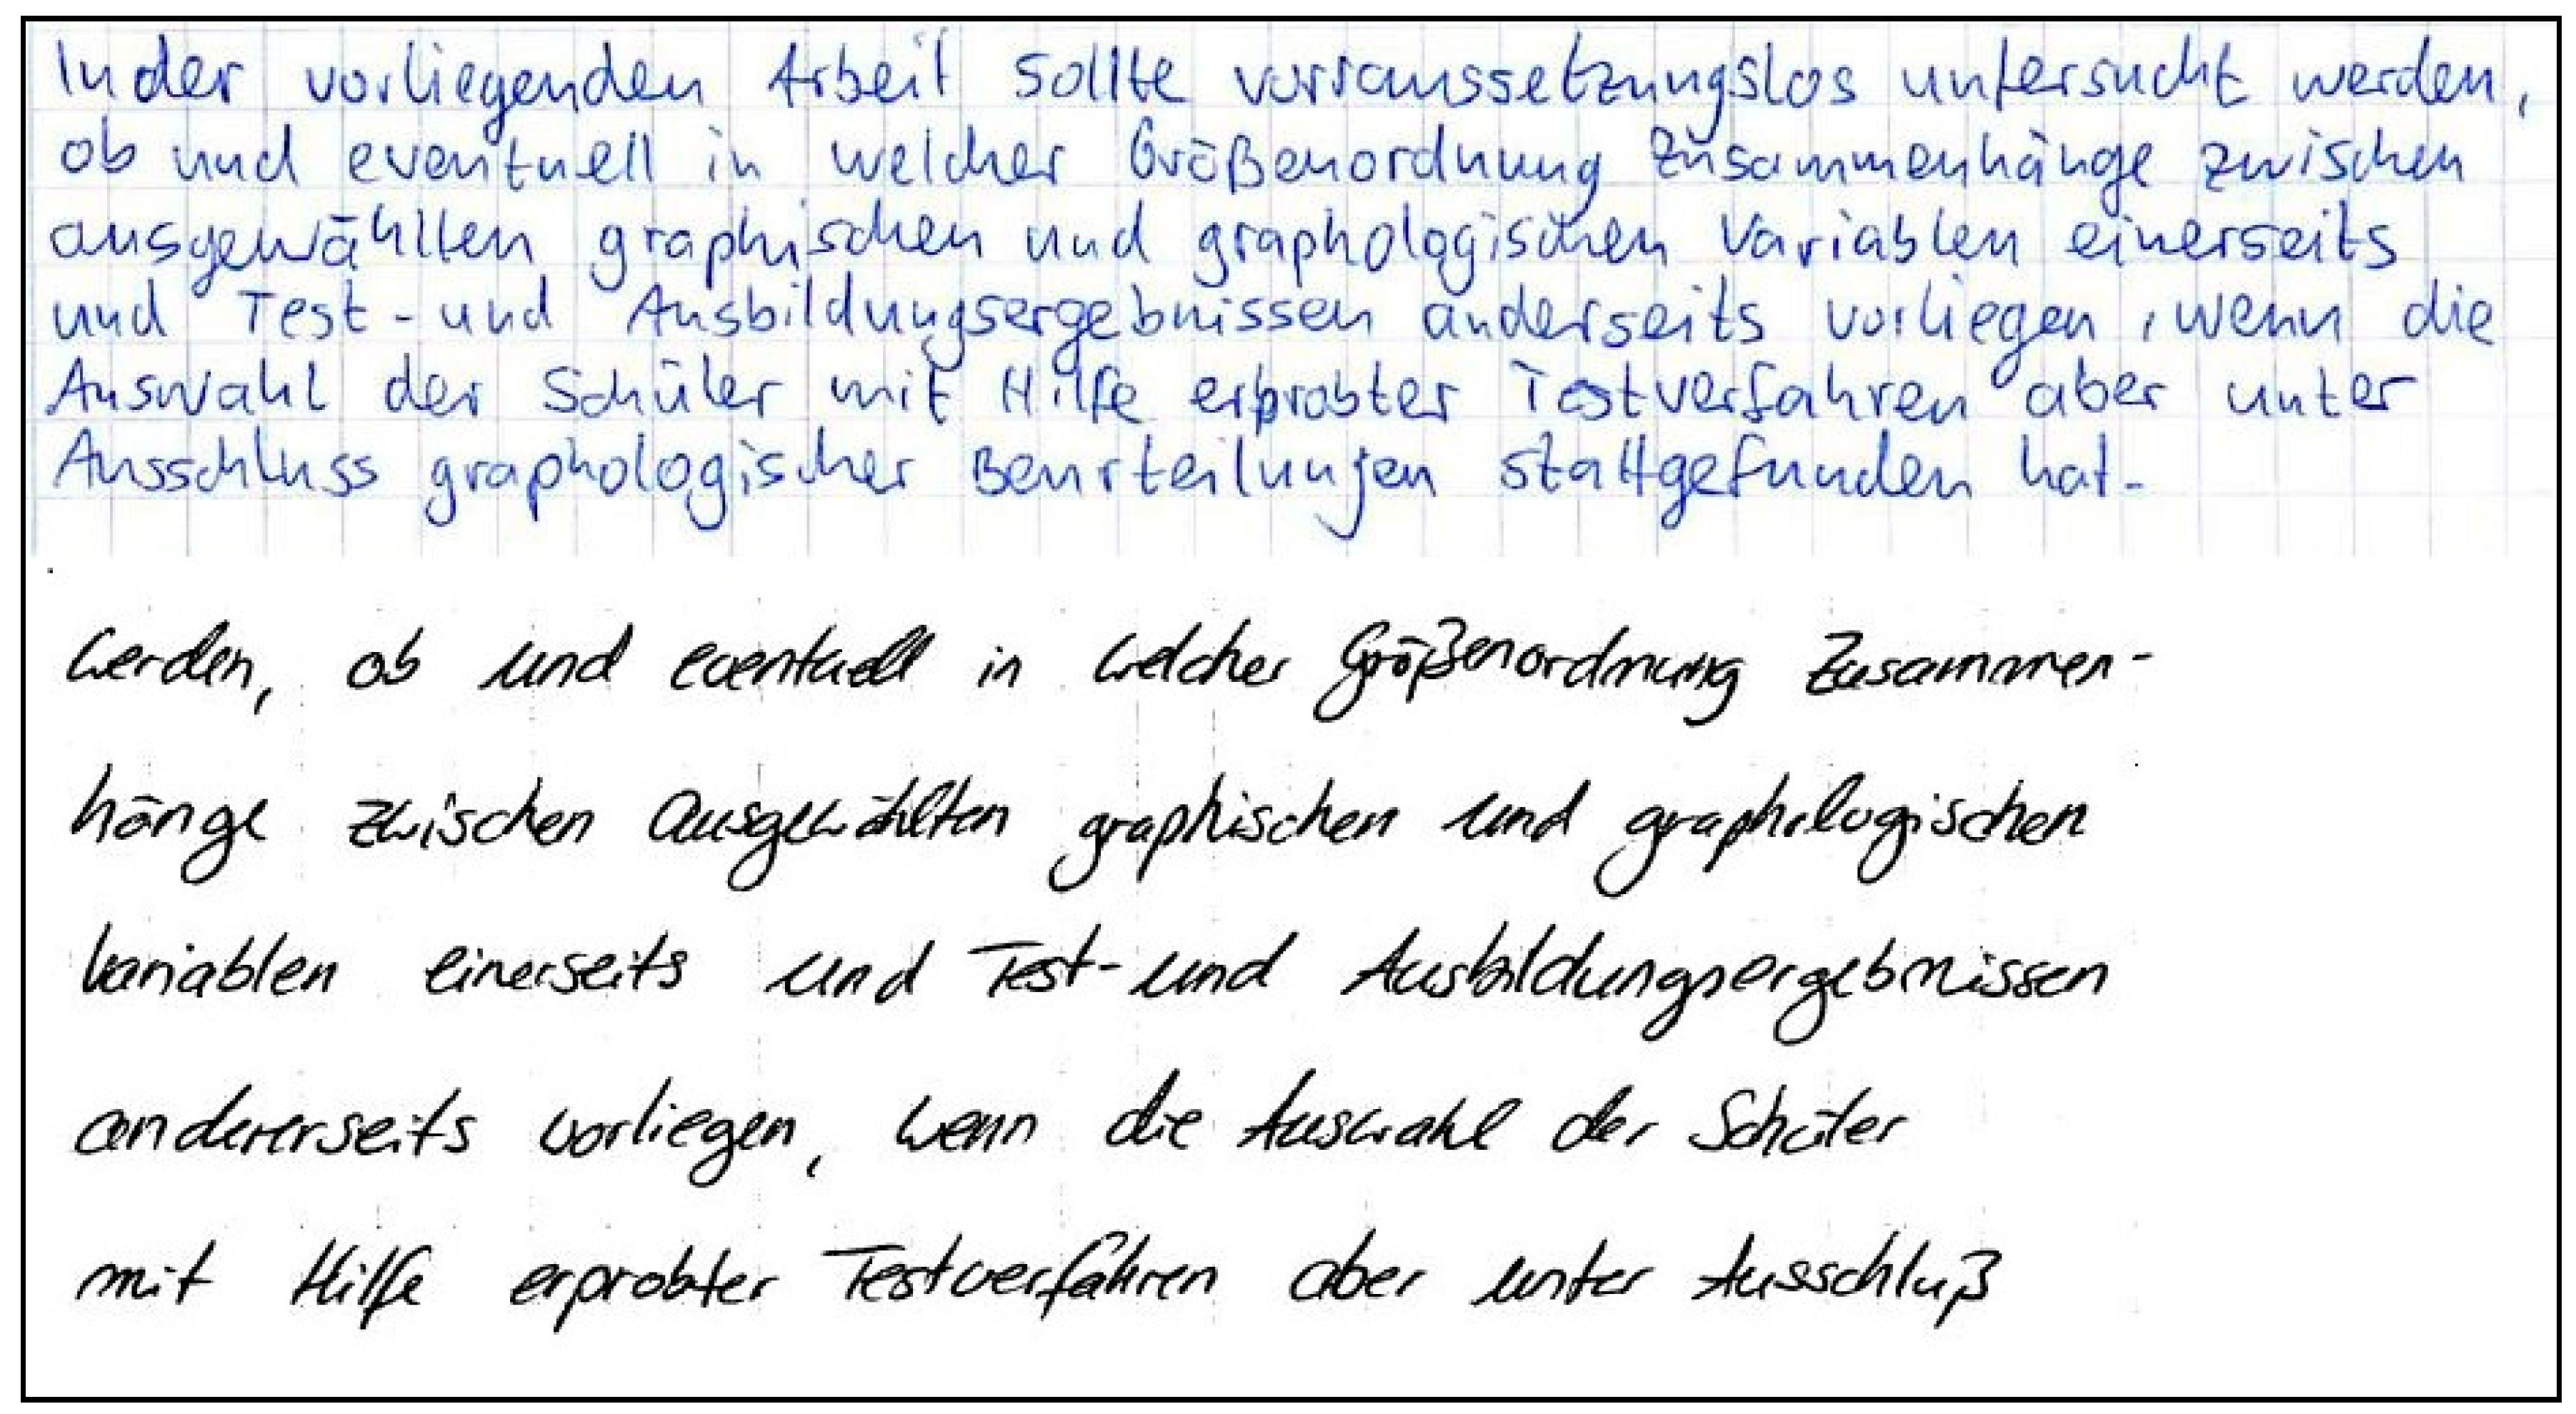 In der vorliegenden Arbeit sollte vorraussetzungslos untersucht werden,
ob und eventuell in welcher Größenordnung Zusammenhänge zwischen
ausgewählten graphischen und graphologischen Variablen einerseits
und Test-und Ausbildungsergebnissen anderseits vorliegen, wenn die
Auswahl der Schüler mit Hilfe erprobter Testverfahren aber unter
Ausschluss graphologischer Beurteilungen stattgefunden hat.
werden, ob und eventuell in welcher Größenordnung Zusammen-
hänge zwischen ausgewählten graphischen und graphologischen
Variablen einerseits und Test-und Ausbildungsergebnissen
andererseits vorliegen, wenn die Auswahl der Schüler
mit Hilfe erprobter Testverfahren aber unter Ausschluß